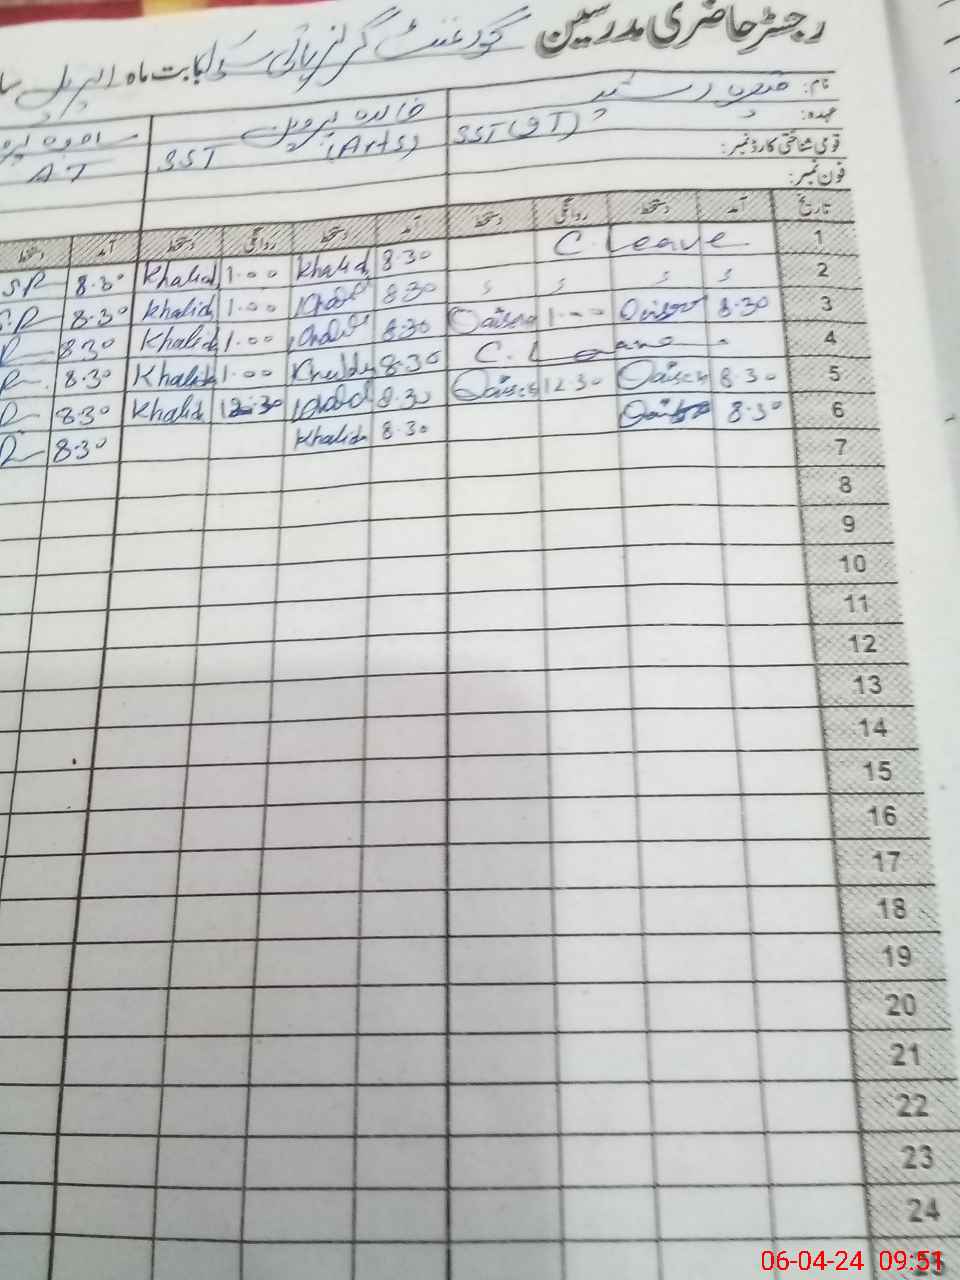 رجسٹر حاضری مدرسین گورنمنٹ گرلز ہائی سکول بابت ماہ اپریل
نام: قیصرہ رشید خالدہ پروین
عہدہ: SST (IT) SST (Arts) AT
قومی شناختی کارڈ نمبر:
فون نمبر:
تاریخ آمد دستخط روانگی دستخط آمد دستخط روانگی دستخط آمد دستخط
1 C. Leave 8.30 Khalid 1.00 Khalid 8.30 SR
2 8.30 Khalid 1.00 Khalid 8.30
3 8.30 1.00 8.30 1.00 Khalid 8.30
4 C. Leave 8.30 1.00 Khalid 8.30
5 8.30 12.30 8.30 12.30 Khalid 8.30
6 8.30 8.30 Khalid 8.30
7
8
9
10
11
12
13
14
15
16
17
18
19
20
21
22
23
24
06-04-24 09:51